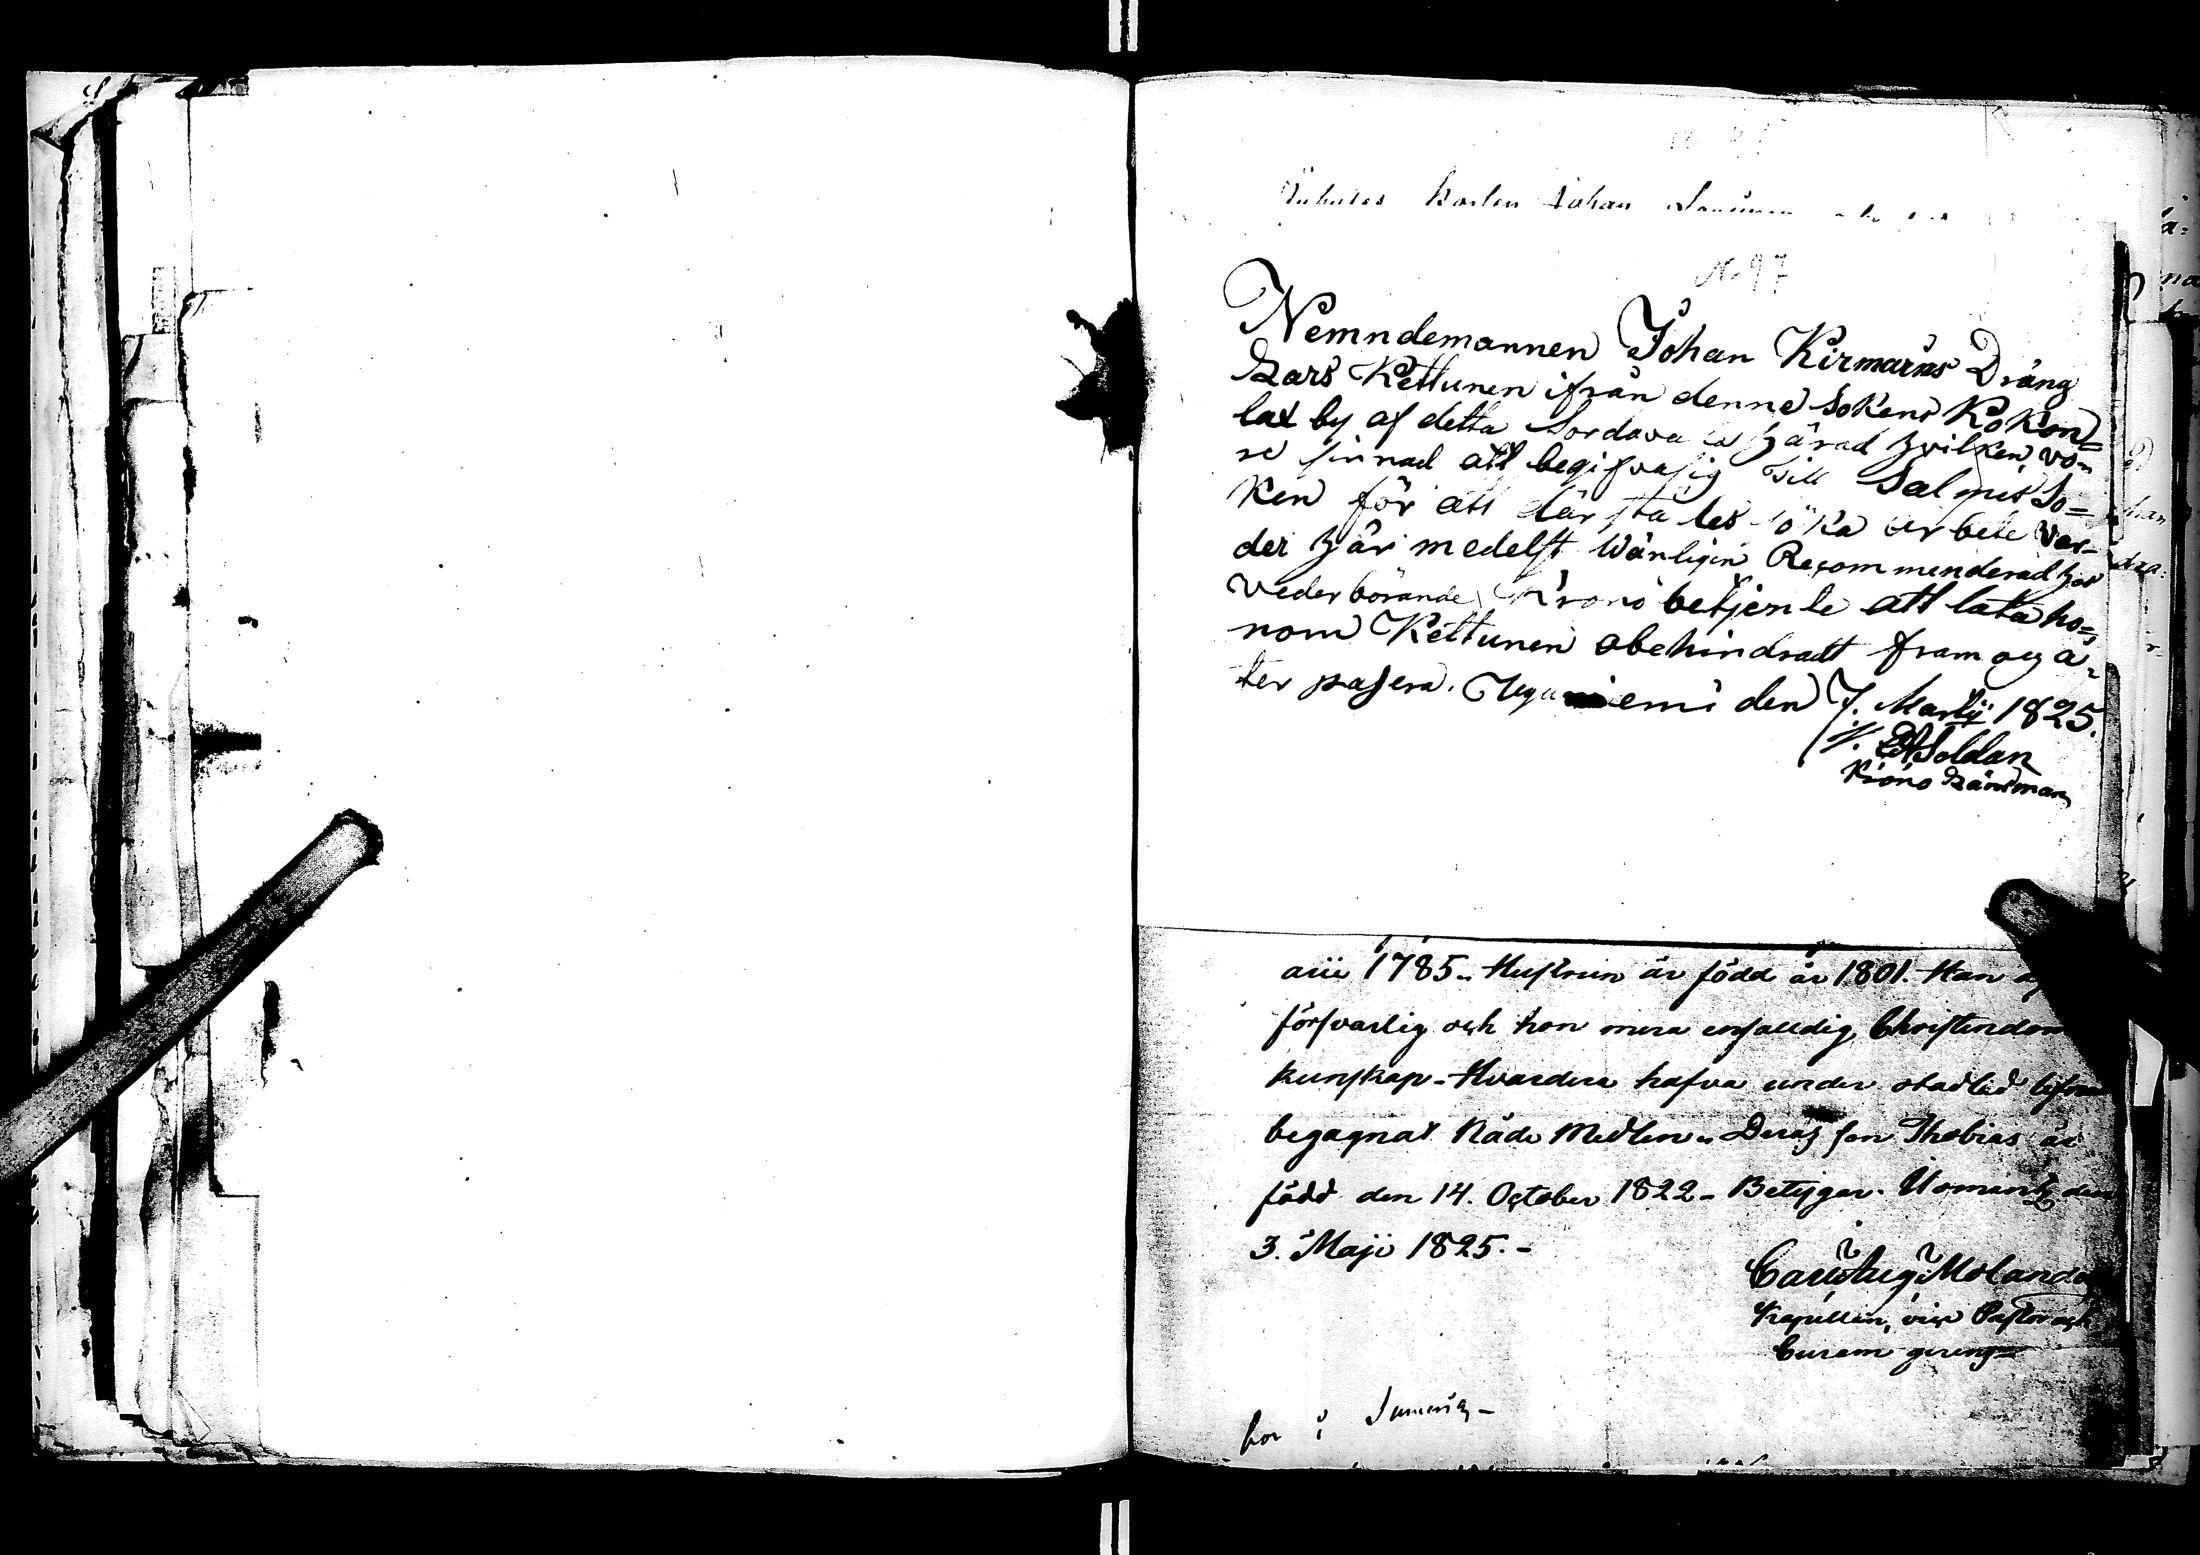 Inhyses Karlen Johan
No 97
Nemndemannen Johan Kirmanes Dräng
Lars Kettunen ifrån denne Sokens Kokon=
lax by af detta Sordavala Härad hvilken vo=
re sinnad att begifva sig till Salmis So=
ken för att där städes söka arbete var=
der här medelst Wänligen Recommenderad hos
vederbörande Krono betjente att låta ho=
nom Kettunen obehindradt fram och å=
ter passera. den 7. Martij 1825.
Soldan
Krono Länsman
arii 1785. Hustrun är född år 1801. Han
försvarlig och hon mera enfalldig Christendom
kunskap. Hvardera hafva under stadled
begagnat Nåde Medlen. Deras son Thobias är
född den 14. October 1822. Betygar. Ilomants den
3. Maji 1825.
Carl Aug. Molander
Kapellan, vice Pastor och
Curam gerens
bor i